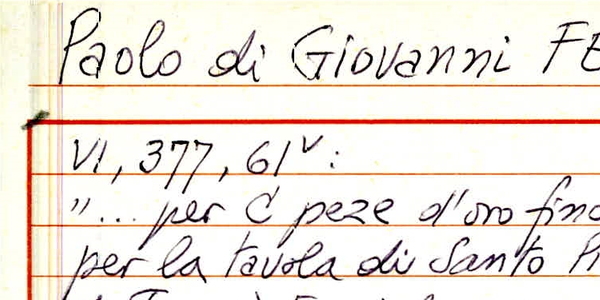 Paolo di Giovanni FE
VI, 377, 61v:
"... per C peze d'oro fino
per la tavola di Santo P